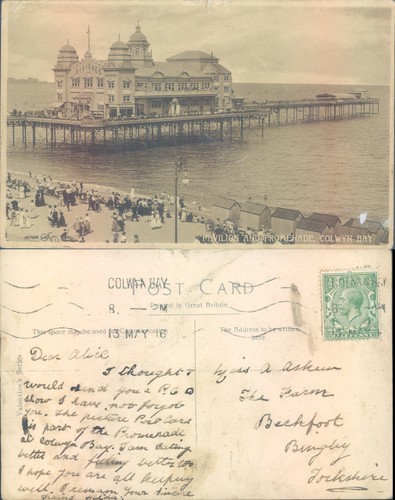 PAVILION AND PROMENADE, COLWYN BAY.
POST CARD
COLWYN BAY
8. PM
13 MY 16
Printed in Great Britain
This space may be used for Communication
The Address to be written
here
Valentine's Series
Dear Alice
I thought I
would send you a P.C. to
show I have not forgot
you. The picture Post Card
is part of the Promenade
at Colwyn Bay. I am eating
better and feeling better
I hope you are all keeping
well, I remain your sincere
Miss A Askew
The Farm
Beckfoot
Bingley
Yorkshire